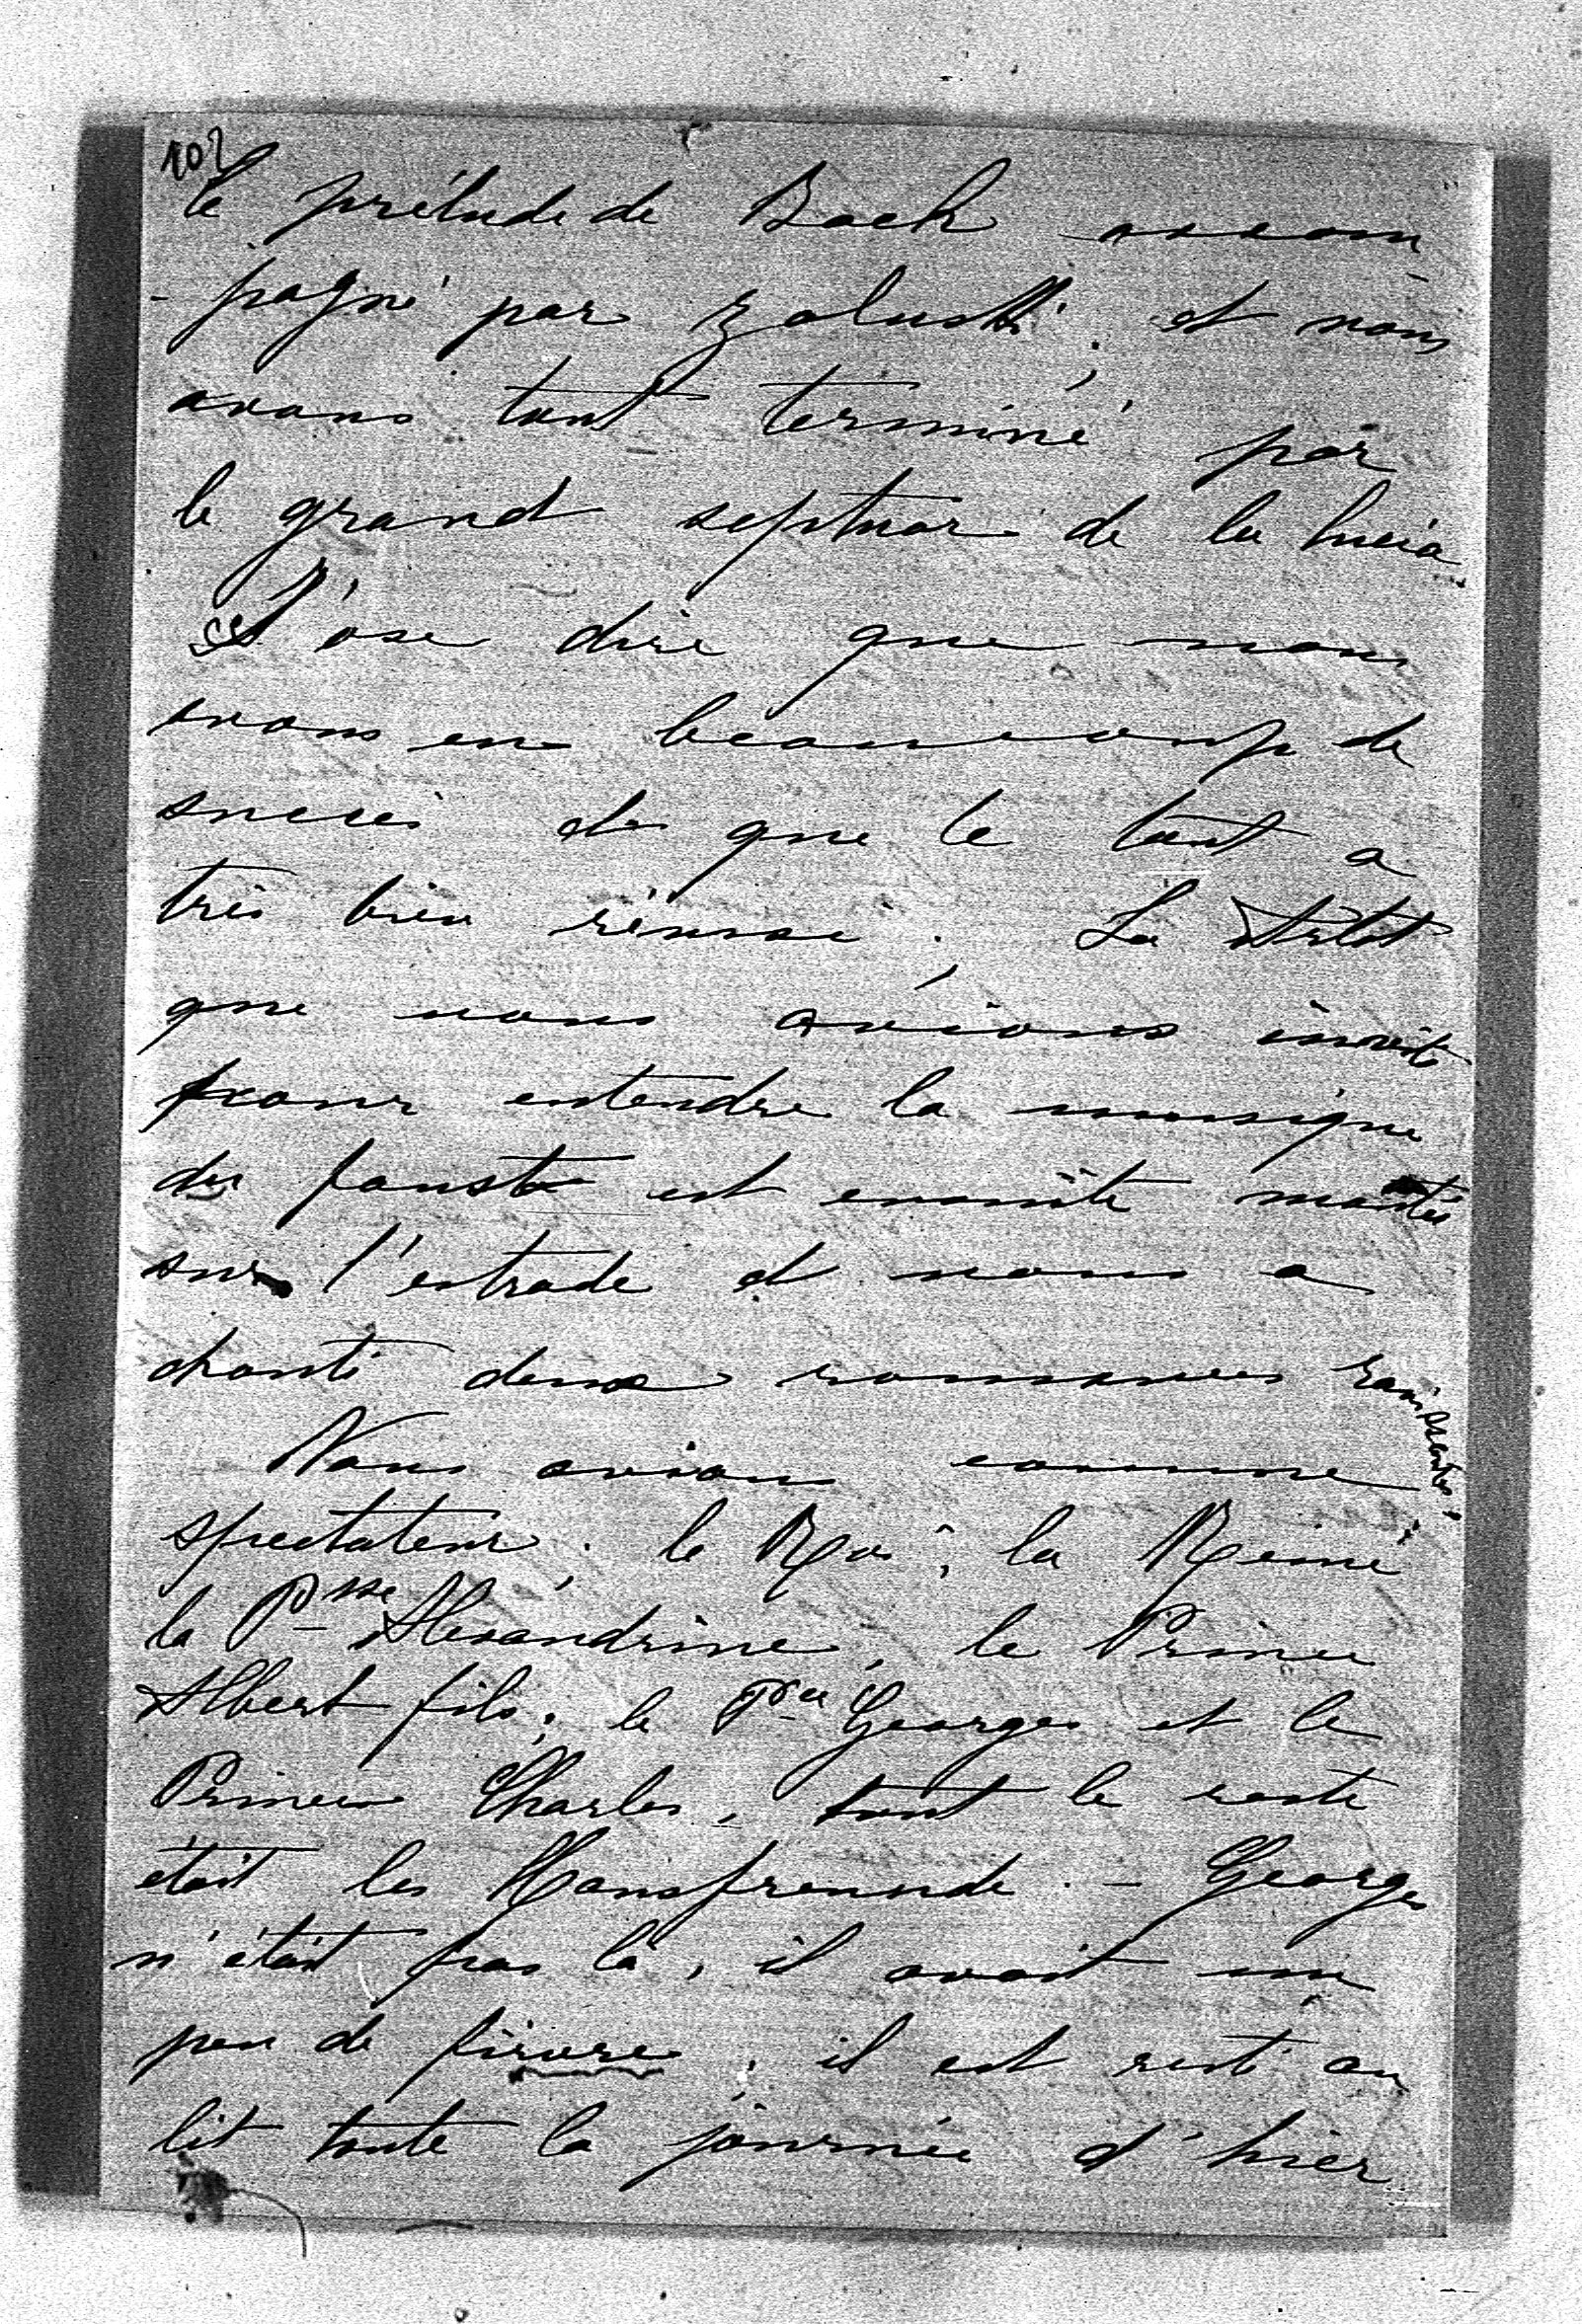 102
le prélude de Bach accom
-pagné par Zaluski; et nous
avons tout terminé par
le grand septuor de la Lucia
J'ose dire que nous
avons eu beaucoup de
succès et que le tout a
très bien réussi. La Artot
que nous avions invité
pour entendre la musique
du Faust est ensuite montée
sur l'estrade et nous a
chanté deux romances ravissantes.
Nous avions comme
spectateur; le Roi, la Reine
la Psse Alexandrine, le Prince
Albert fils, le Pce Georges et le
Prince Charles, tout le reste
était les Hausfreunde. - Georges
n'était pas là, il avait un
peu de fièvre; il est resté au
lit toute la journée d'hier